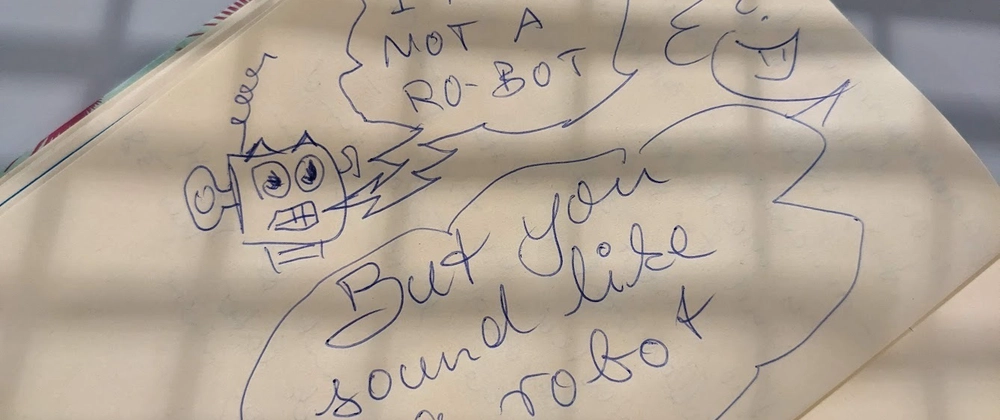 NOT A
RO-BOT
But you
sound like
a robot